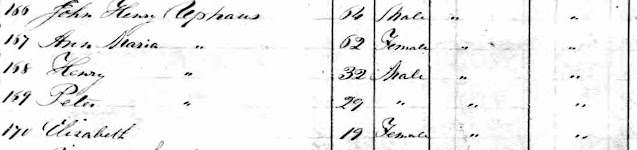 166 John Henry Clephaus 64 Male " "
167 Ann Maria " 62 Female " "
168 Henry " 32 Male " "
169 Peter " 29 " " "
170 Elisabeth 19 Female " "